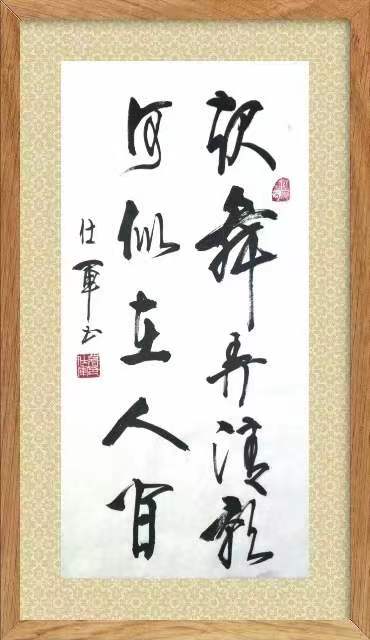 起舞弄清影
何似在人間
仕軍书